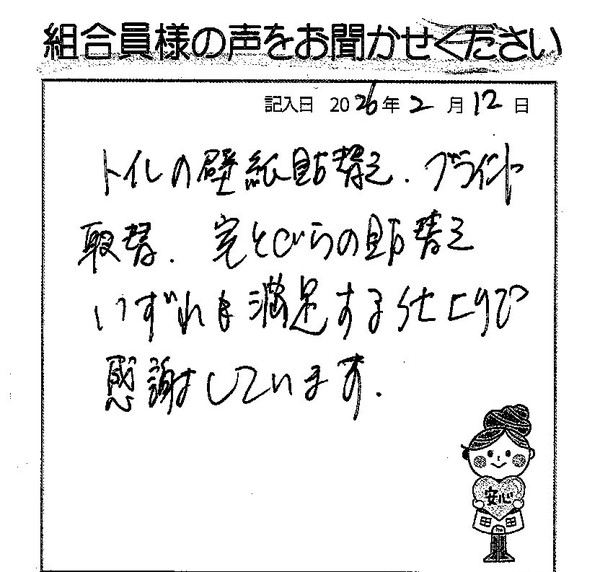 組合員様の声をお聞かせください
記入日 2026年2月12日
トイレの壁紙貼替え、ブラインド
取替、室とびらの貼替え
いずれも満足する仕上りで
感謝しています。
安心